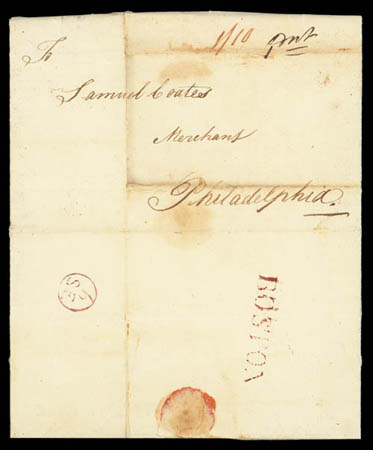 To
1/10
Samuel Coates
Merchant
Philadelphia.
BOSTON